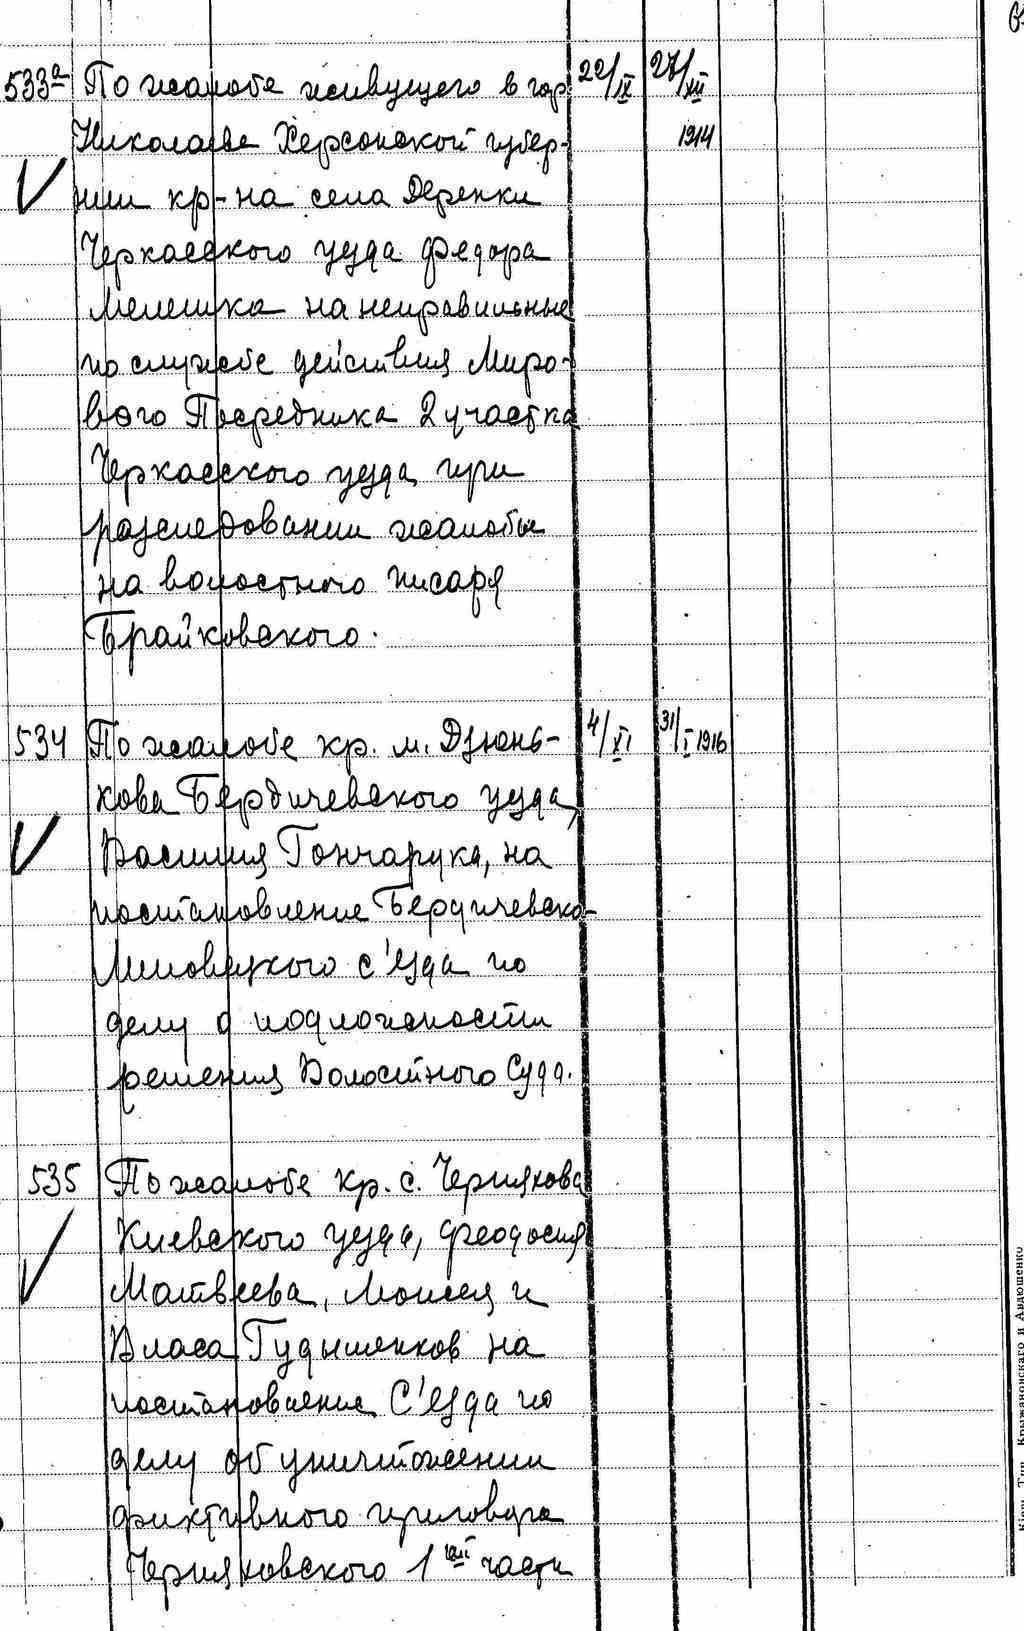 533а По жалобе живущего в гор. 22/IX 27/XII
Николаеве Херсонской губер- 1914
нии кр-на села Деренки
Черкасского уезда Федора
Мелешка на неправильные
по службе действия Миро-
вого Посредника 2 участка
Черкасского уезда при
разследовании жалобы
на волостного писаря
Брайковского.
534 По жалобе кр. м. Дзюнь- 4/XI 31/I 1916
кова Бердичевского уезда,
Василия Гончарука, на
постановление Бердичевско-
Липовецкого с'езда по
делу о подложности
решения Волостного Суда.
535 По жалобе кр. с. Черняхова
Киевского уезда, Феодосия
Матвеева, Моисея и
Власа Гудыменков на
постановление С'езда по
делу об уничтожении
фиктивного приговора
Черняховского 1ой части
Кіевъ, Тип. Крыжановскаго и Авдюшенко